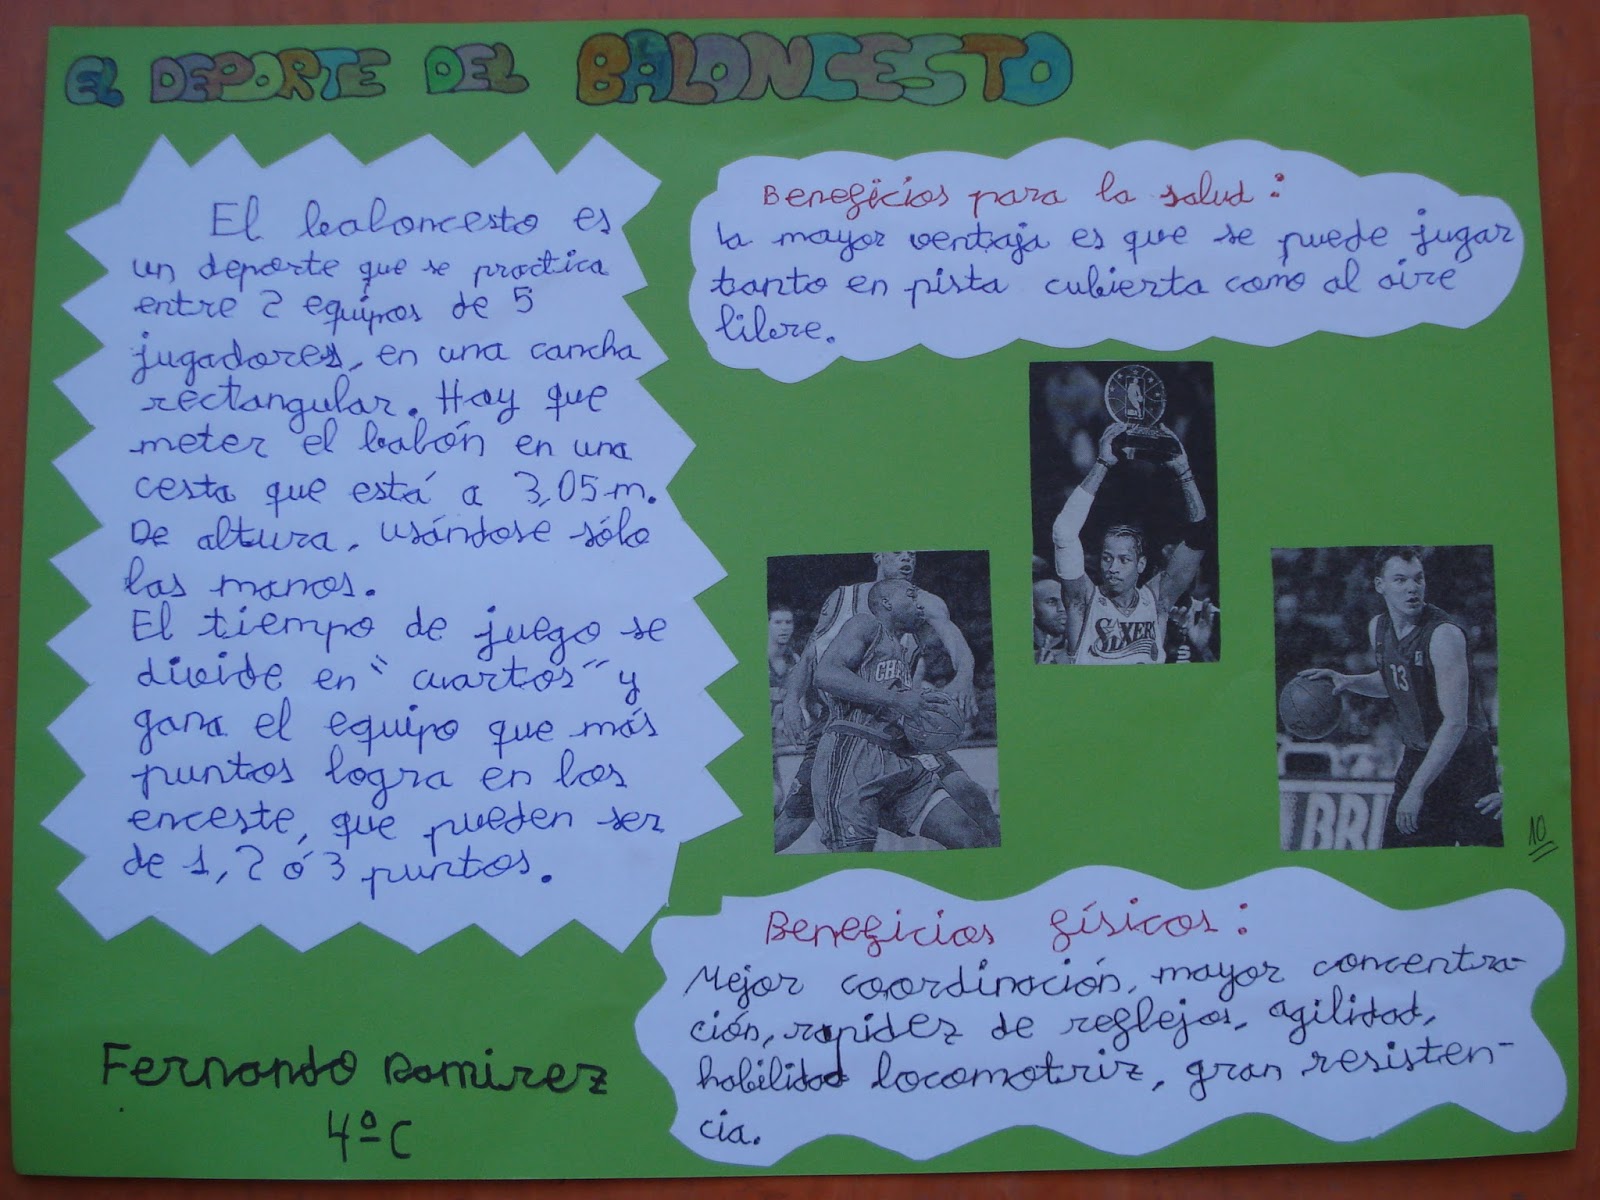 EL DEPORTE DEL BALONCESTO
El baloncesto es
un deporte que se practica
entre 2 equipos de 5
jugadores, en una cancha
rectangular. Hay que
meter el balón en una
cesta que está a 3,05 m.
De altura, usándose sólo
las manos.
El tiempo de juego se
divide en "cuartos" y
gana el equipo que más
puntos logra en los
enceste, que pueden ser
de 1, 2 ó 3 puntos.
Beneficios para la salud:
la mayor ventaja es que se puede jugar
tanto en pista cubierta como al aire
libre.
SIXERS
13
BRI
10
Beneficios físicos:
Mejor coordinación, mayor concentra-
ción, rapidez de reflejos, agilidad,
habilidad locomotriz, gran resisten-
cia.
Fernando Ramirez
4º C